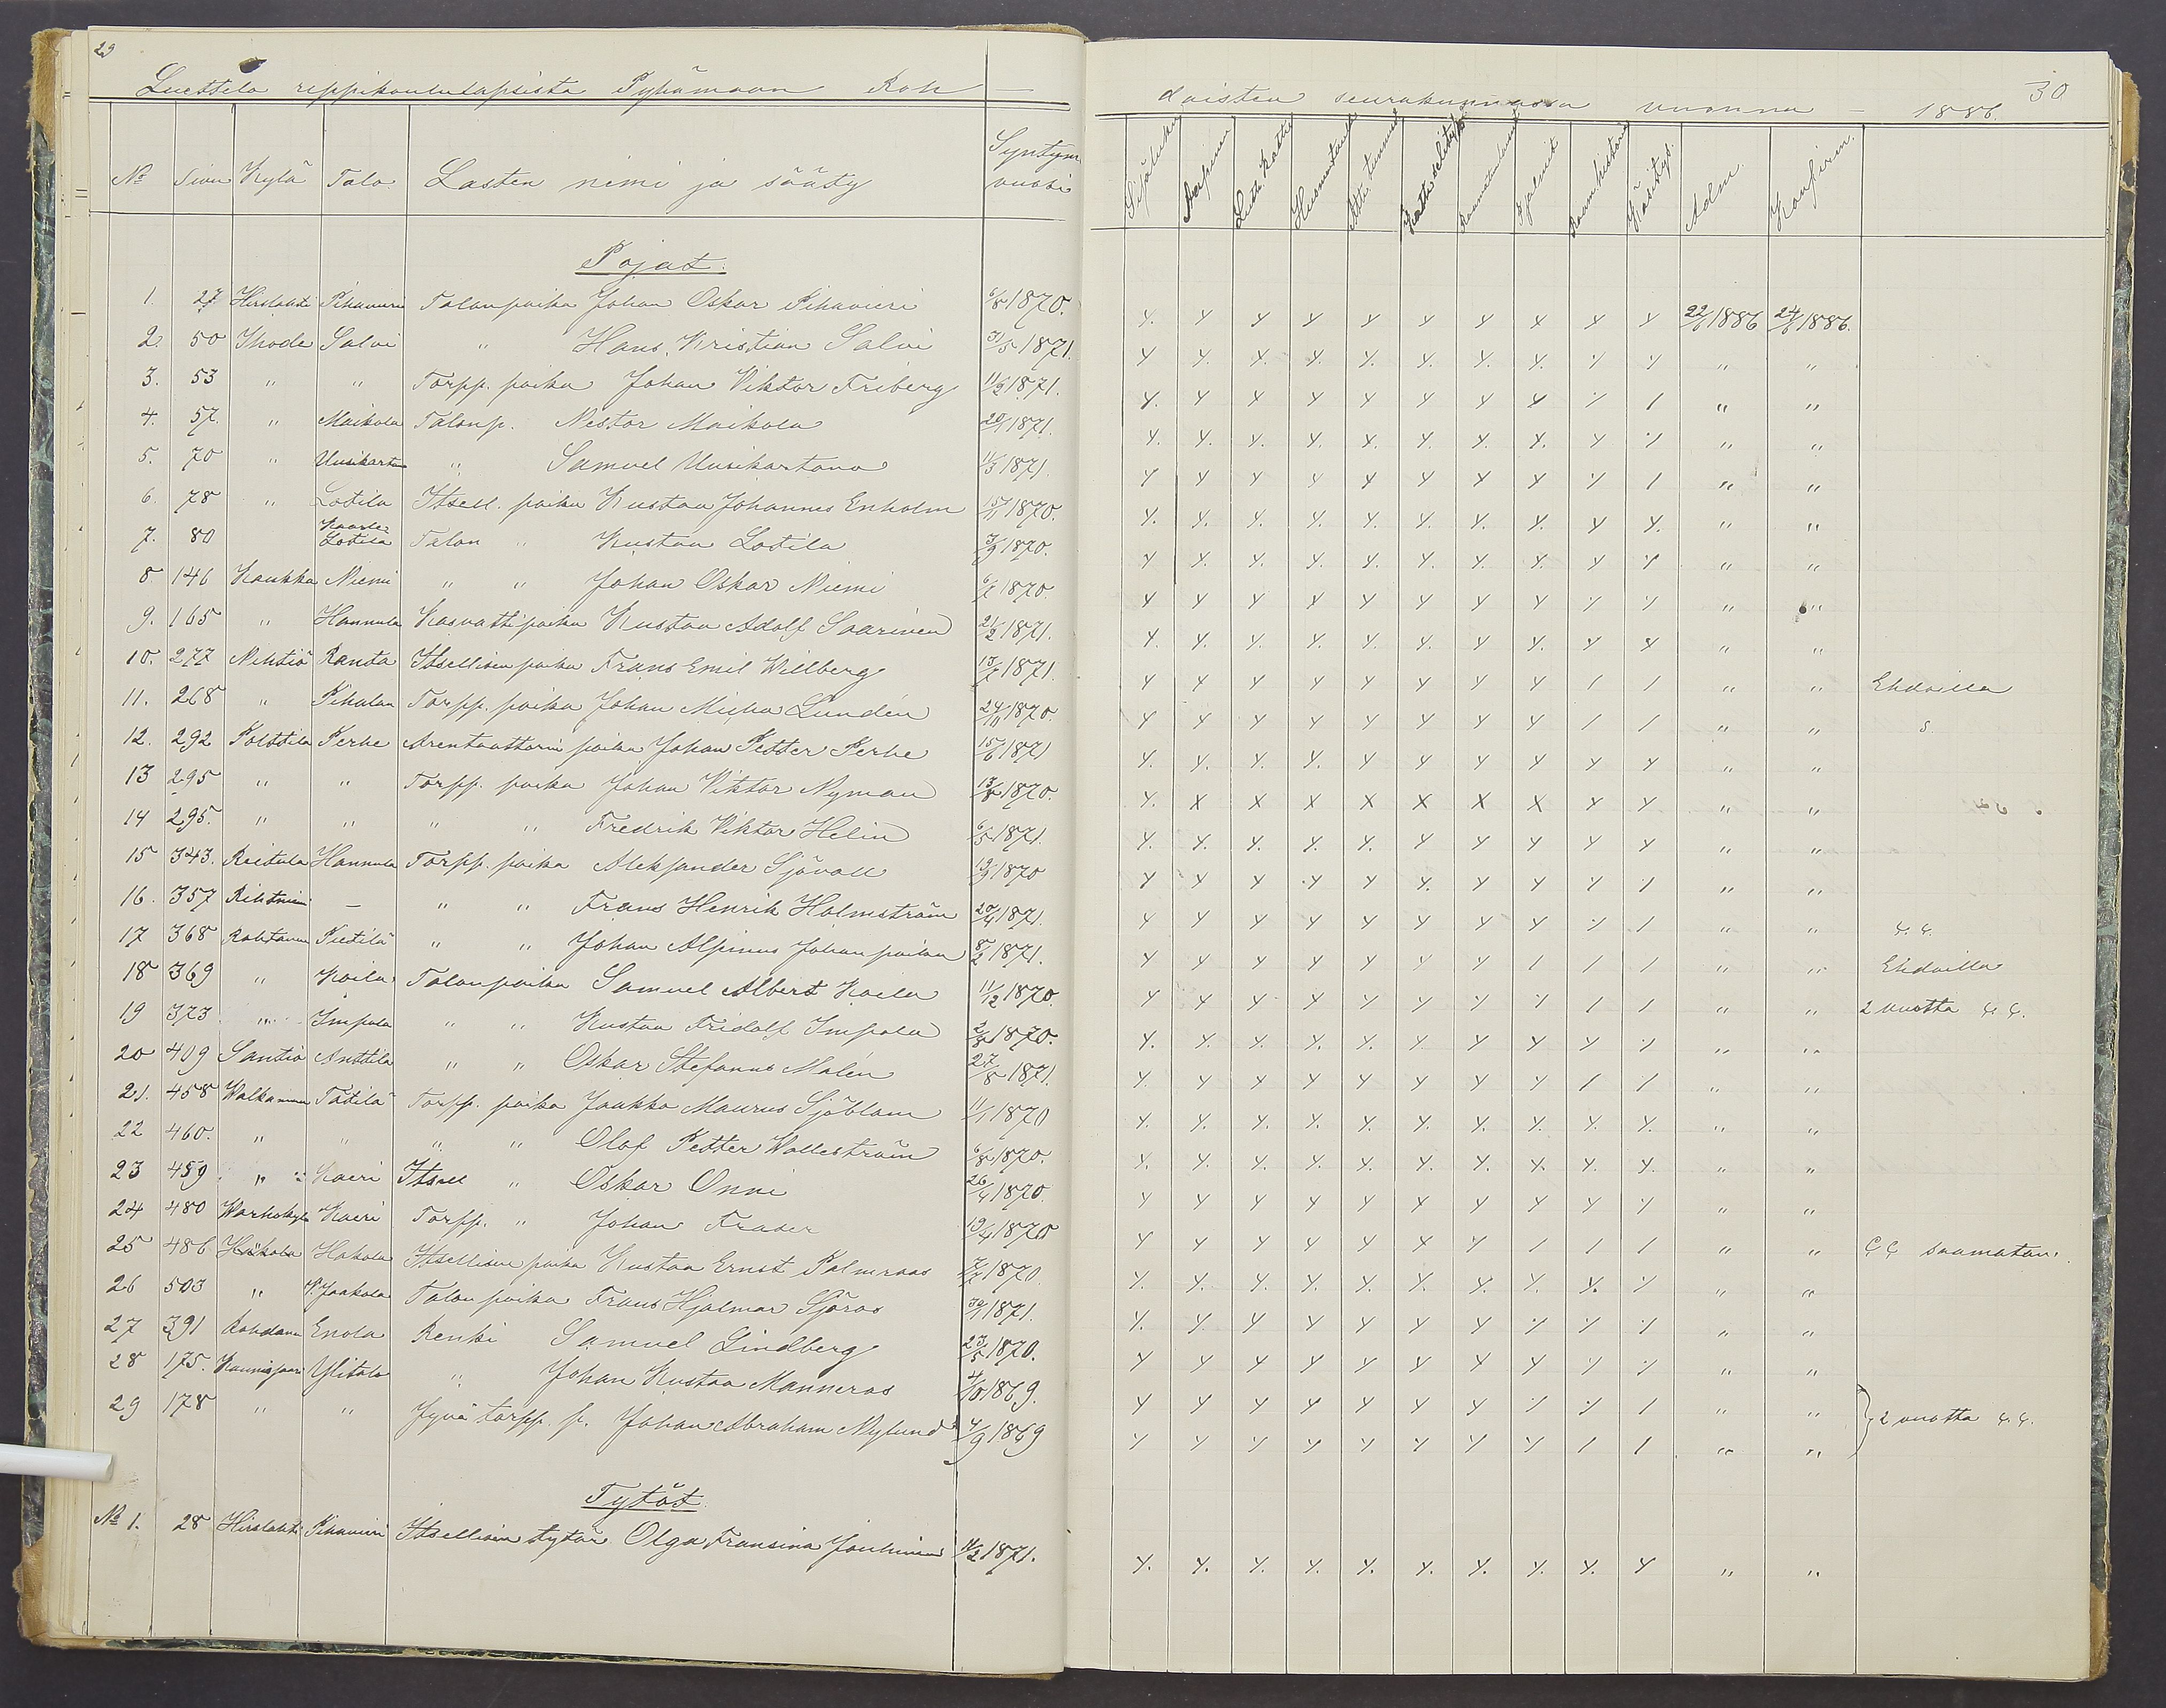 29
30
Luettelo rippikoululapsista Pyhämaan Roh-
daisten seurakunnassa vuonna - 1886.
No Sivu Kylä Talo Lasten nimi ja sääty Syntym. vuosi Sisäluku Aapinen Luth. Katki Huomentaulu Kristin selitys Psalmit Raam. historia Käsitys Adm. Konfirm.
Pojat.
1. 27 Hirslahti Pihavieri Talonpoika Johan Oskar Pihavieri 6/8 1870. 22/8 1886 24/8 1886.
2. 50 Ihode Salvi " Hans Kristian Salvi 31/5 1871. " "
3. 53 " " Torpp. poika Johan Viktor Friberg 11/2 1871. " "
4. 57. " Maikola Talonp. Nestor Maikola 20/1 1871. " "
5. 70 " Uusikartano " Samuel Uusikartano 11/3 1871. " "
6. 78 " Lotila Itsell. poika Kustaa Johannes Enholm 15/11 1870. " "
7. 80 Kaarle Lotila Talon " Kustaa Lotila 3/9 1870. " "
8 146 Kaukka Niemi " " Johan Oskar Niemi 6/7 1870. " "
9. 165 " Hannula Kasvattipoika Kustaa Adolf Saarinen 21/2 1871. " "
10. 277 Nihtiö Ranta Itsellisen poika Frans Emil Willberg 13/7 1871. " " Ehdoilla
11. 268 " Pihalan Torpp. poika Johan Micko Lundén 24/11 1870. " " S.
12. 292 Polttila Perhe Arentaattorin poika Johan Petter Perhe 15/6 1871 " "
13 295 " " Torpp. poika Johan Viktor Nyman 13/8 1870. " "
14 295. " " " " Fredrik Viktor Helin 6/5 1871. " "
15 343. Reitula Hannula Torpp. poika Aleksander Sjövall 19/9 1870 " "
16. 357 Rihtniemi - " " Frans Henrik Holmström 20/4 1871. " " C. C.
17 368 Rohdainen Pietilä " " Johan Alpinus Johan poika 8/2 1871. " " Ehdoilla
18 369 " Koila Talonpoika Samuel Albert Koila 11/12 1870. " " 2 vuotta C. C.
19 373 " Impola " " Kustaa Fridolf Impola 2/8 1870. " "
20 409 Santio Anttila " " Oskar Stefanus Malén 27/8 1871. " "
21. 458 Walkamaa Tätilä Torpp. poika Jaakko Maurus Sjöblom 11/1 1870 " "
22 460. " " " " Olof Petter Wallström 6/8 1870. " "
23 459 " " Kaeri Itsell " Oskar Onni 26/4 1870. " "
24 480 Warhokylä Kaeri Torpp. " Johan Fraser 19/4 1870 " " C C saamatan.
25 486 Häkola Hakola Itsellisen poika Kustaa Ernst Palmroos 7/7 1870. " "
26 503 " P. Jaakola Talonpoika Frans Hjalmar Sjöros 30/1 1871. " "
27 391 Rohdain Enola Renki Samuel Lindberg 23/5 1870. " "
28 175. Kaunissaari Ylitalo " Johan Kustaa Manneros 4/10 1869. " " } 2 vuotta C. C.
29 178 " " Jyvä torpp. p. Johan Abraham Nylund 4/9 1869 " "
Tytöt.
No 1. 28 Hirslahti Pihavieri Itsellisen tytär Olga Fransina Jouhinen 11/2 1871. " "